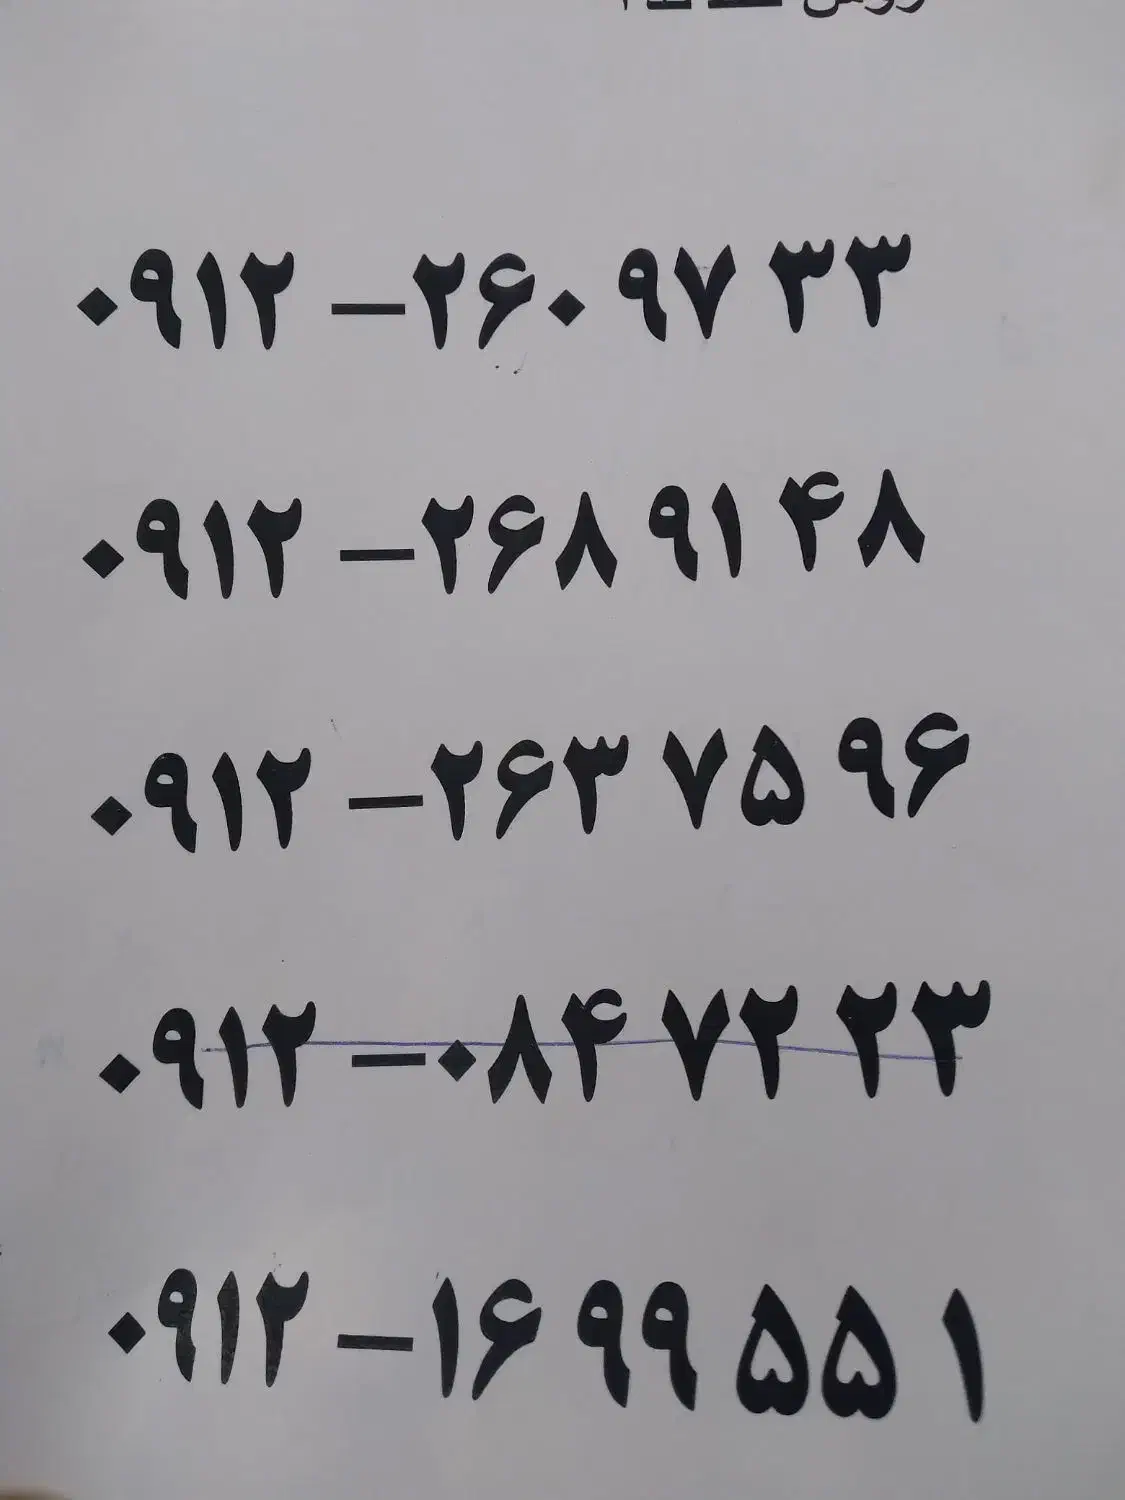 ۰۹۱۲ – ۲۶۰ ۹۷ ۳۳
۰۹۱۲ – ۲۶۸ ۹۱ ۴۸
۰۹۱۲ – ۲۶۳ ۷۵ ۹۶
۰۹۱۲ – ۰۸۴ ۷۲ ۲۳
۰۹۱۲ – ۱۶ ۹۹ ۵۵ ۱